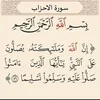 سورة الاحزاب
بِسْمِ اللَّهِ الرَّحْمَٰنِ الرَّحِيمِ
إِنَّ اللَّهَ وَمَلَٰٓئِكَتَهُۥ يُصَلُّونَ
عَلَى النَّبِيِّ يَٰٓأَيُّهَا الَّذِينَ ءَامَنُوا۟
صَلُّوا۟ عَلَيْهِ وَسَلِّمُوا۟ تَسْلِيمًا ٥٦